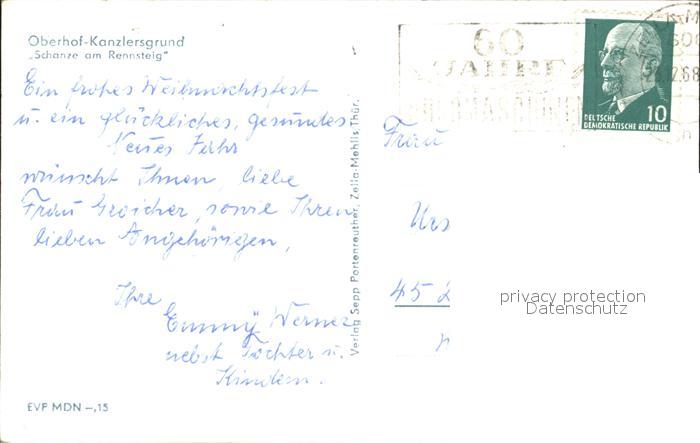 Oberhof-Kanzlersgrund
„Schanze am Rennsteig"
Ein frohes Weihnachtsfest
u. ein glückliches, gesundes
Neues Jahr
wünscht Ihnen, liebe
Frau Groicher, sowie Ihren
lieben Angehörigen,
Ihre
Emmy Werner
nebst Töchter u.
Kindern.
EVP MDN -,15
Verlag Sepp Portenreuther, Zella-Mehlis, Thür.
60
JAHRE
DEUTSCHE
DEMOKRATISCHE REPUBLIK
10
Frau
Urs
45
privacy protection
Datenschutz